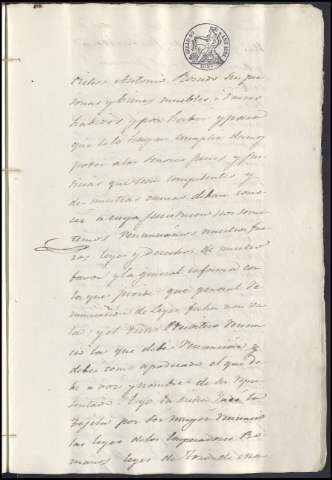 dicho Antonio Rosado sus per
sonas y bienes muebles, e raices
habidos y por haber y para
que selo hagan cumplir damos
poder a los señores jueces y jus
ticias que sean competentes y
de nuestras causas deban cono
cer a cuya jurisdiccion nos some
temos renunciamos nuestros fue
ros leyes y derechos de nuestro
favor y la general en forma con
la que proive que general re
nunciacion de leyes fecha non va
la: y el dicho renun
cia la que debe renunciar y
debe como apoderado el que de
be a voz y nombre de su repre
sentado: Yo la dicha
por ser muger renuncio
las leyes de los Emperadores Ro
manos leyes de Toro de ma